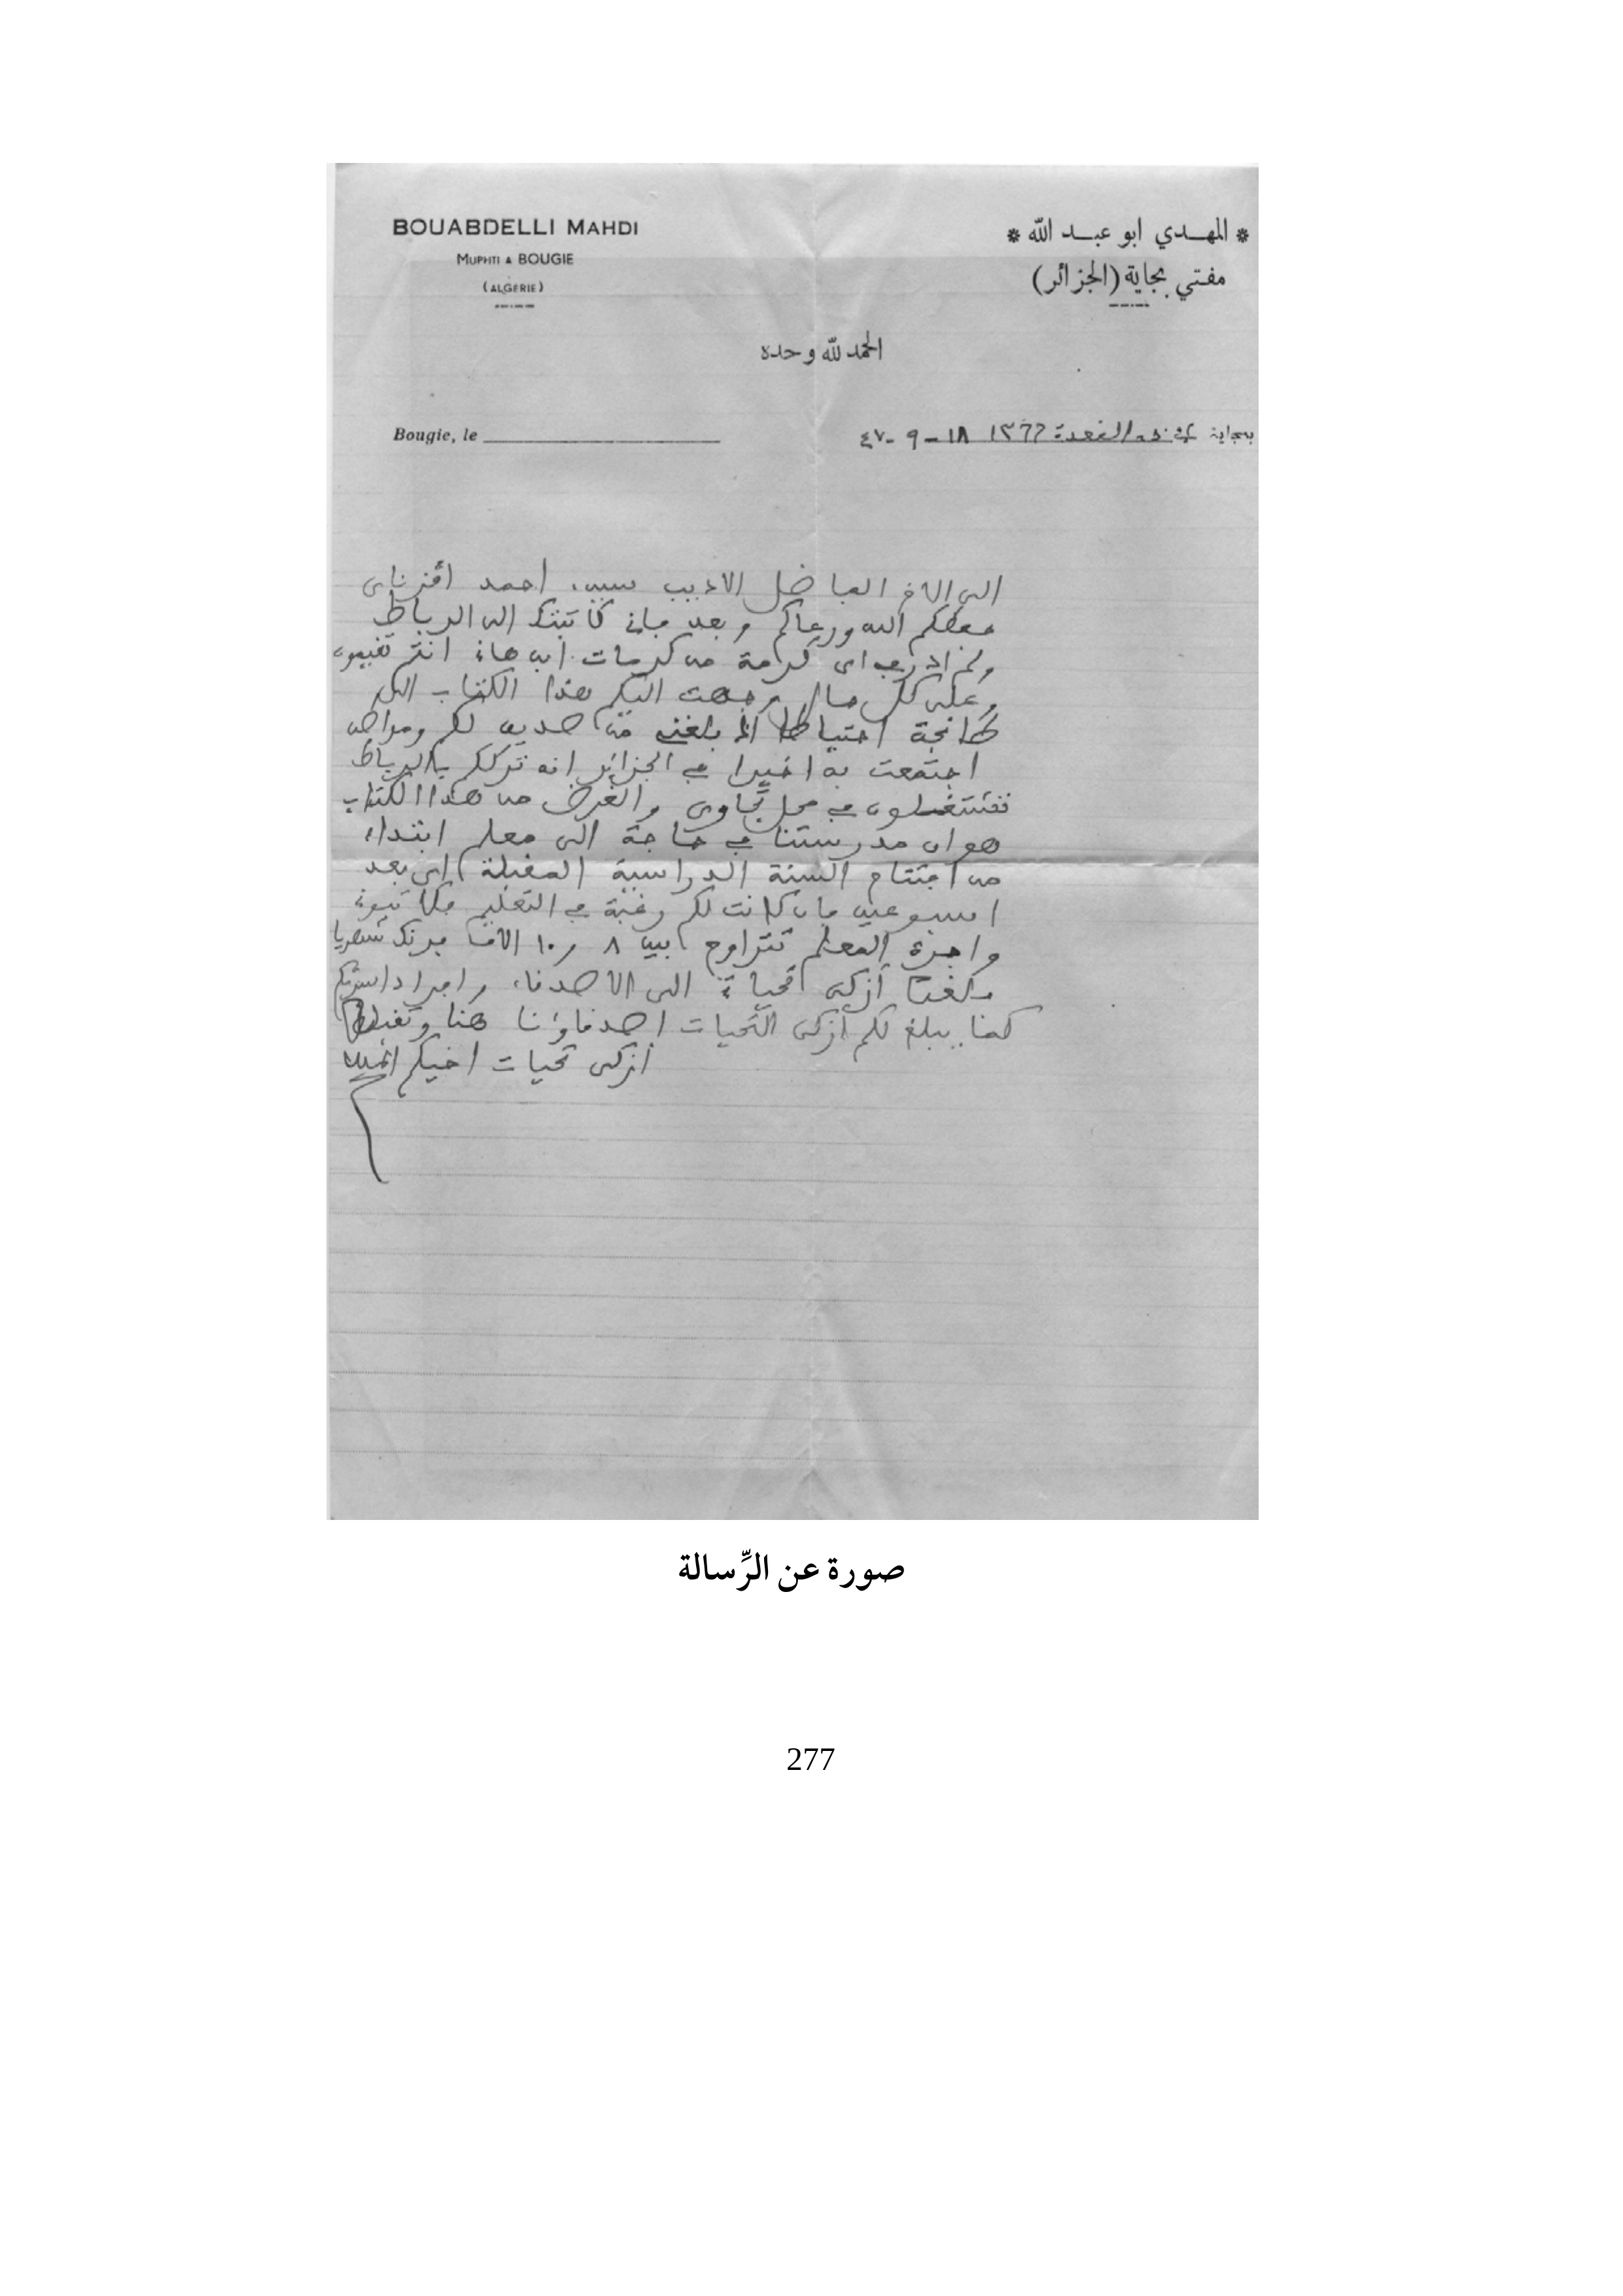 BOUABDELLI MAHDI
MUPHTI A BOUGIE
(ALGERIE)
* المهدي ابو عبد الله *
مفتي بجاية (الجزائر)
الحمد لله وحده
Bougie, le
بجاية القعدة ١٣٦٦ ١٨-٩-٤٧
الى الاخ الفاضل الاديب احمد
حفظكم الله ورعاكم وبعد فانى كاتبتك الى الرباط
ولم ادر اى من انتم تقيمون
وعلى كل حال وجهت اليكم هذا الكتاب الى
طانجة احتياطا بلغنى من صديق لكم
اجتمعت به اخيرا فى الجزائر انه ترككم بالرباط
تشتغلون فى محل تجاوى والغرض من هذا الكتاب
هو ان مدرستنا فى حاجة الى معلم ابتداء
من افتتاح السنة الدراسية المقبلة اى بعد
اسبوعين فان كانت لكم رغبة فى التعليم فكاتبونى
واجرة المعلم تتراوح بين ٨ و١٠ الاف فرنك شهريا
أزكى الى الاصدقاء وافراد اسرتكم
كما يبلغ لكم أزكى التحيات اصدقاؤنا هنا وتقبلوا
ازكى تحيات اخيكم المهدى
صورة عن الرِّسالة
277